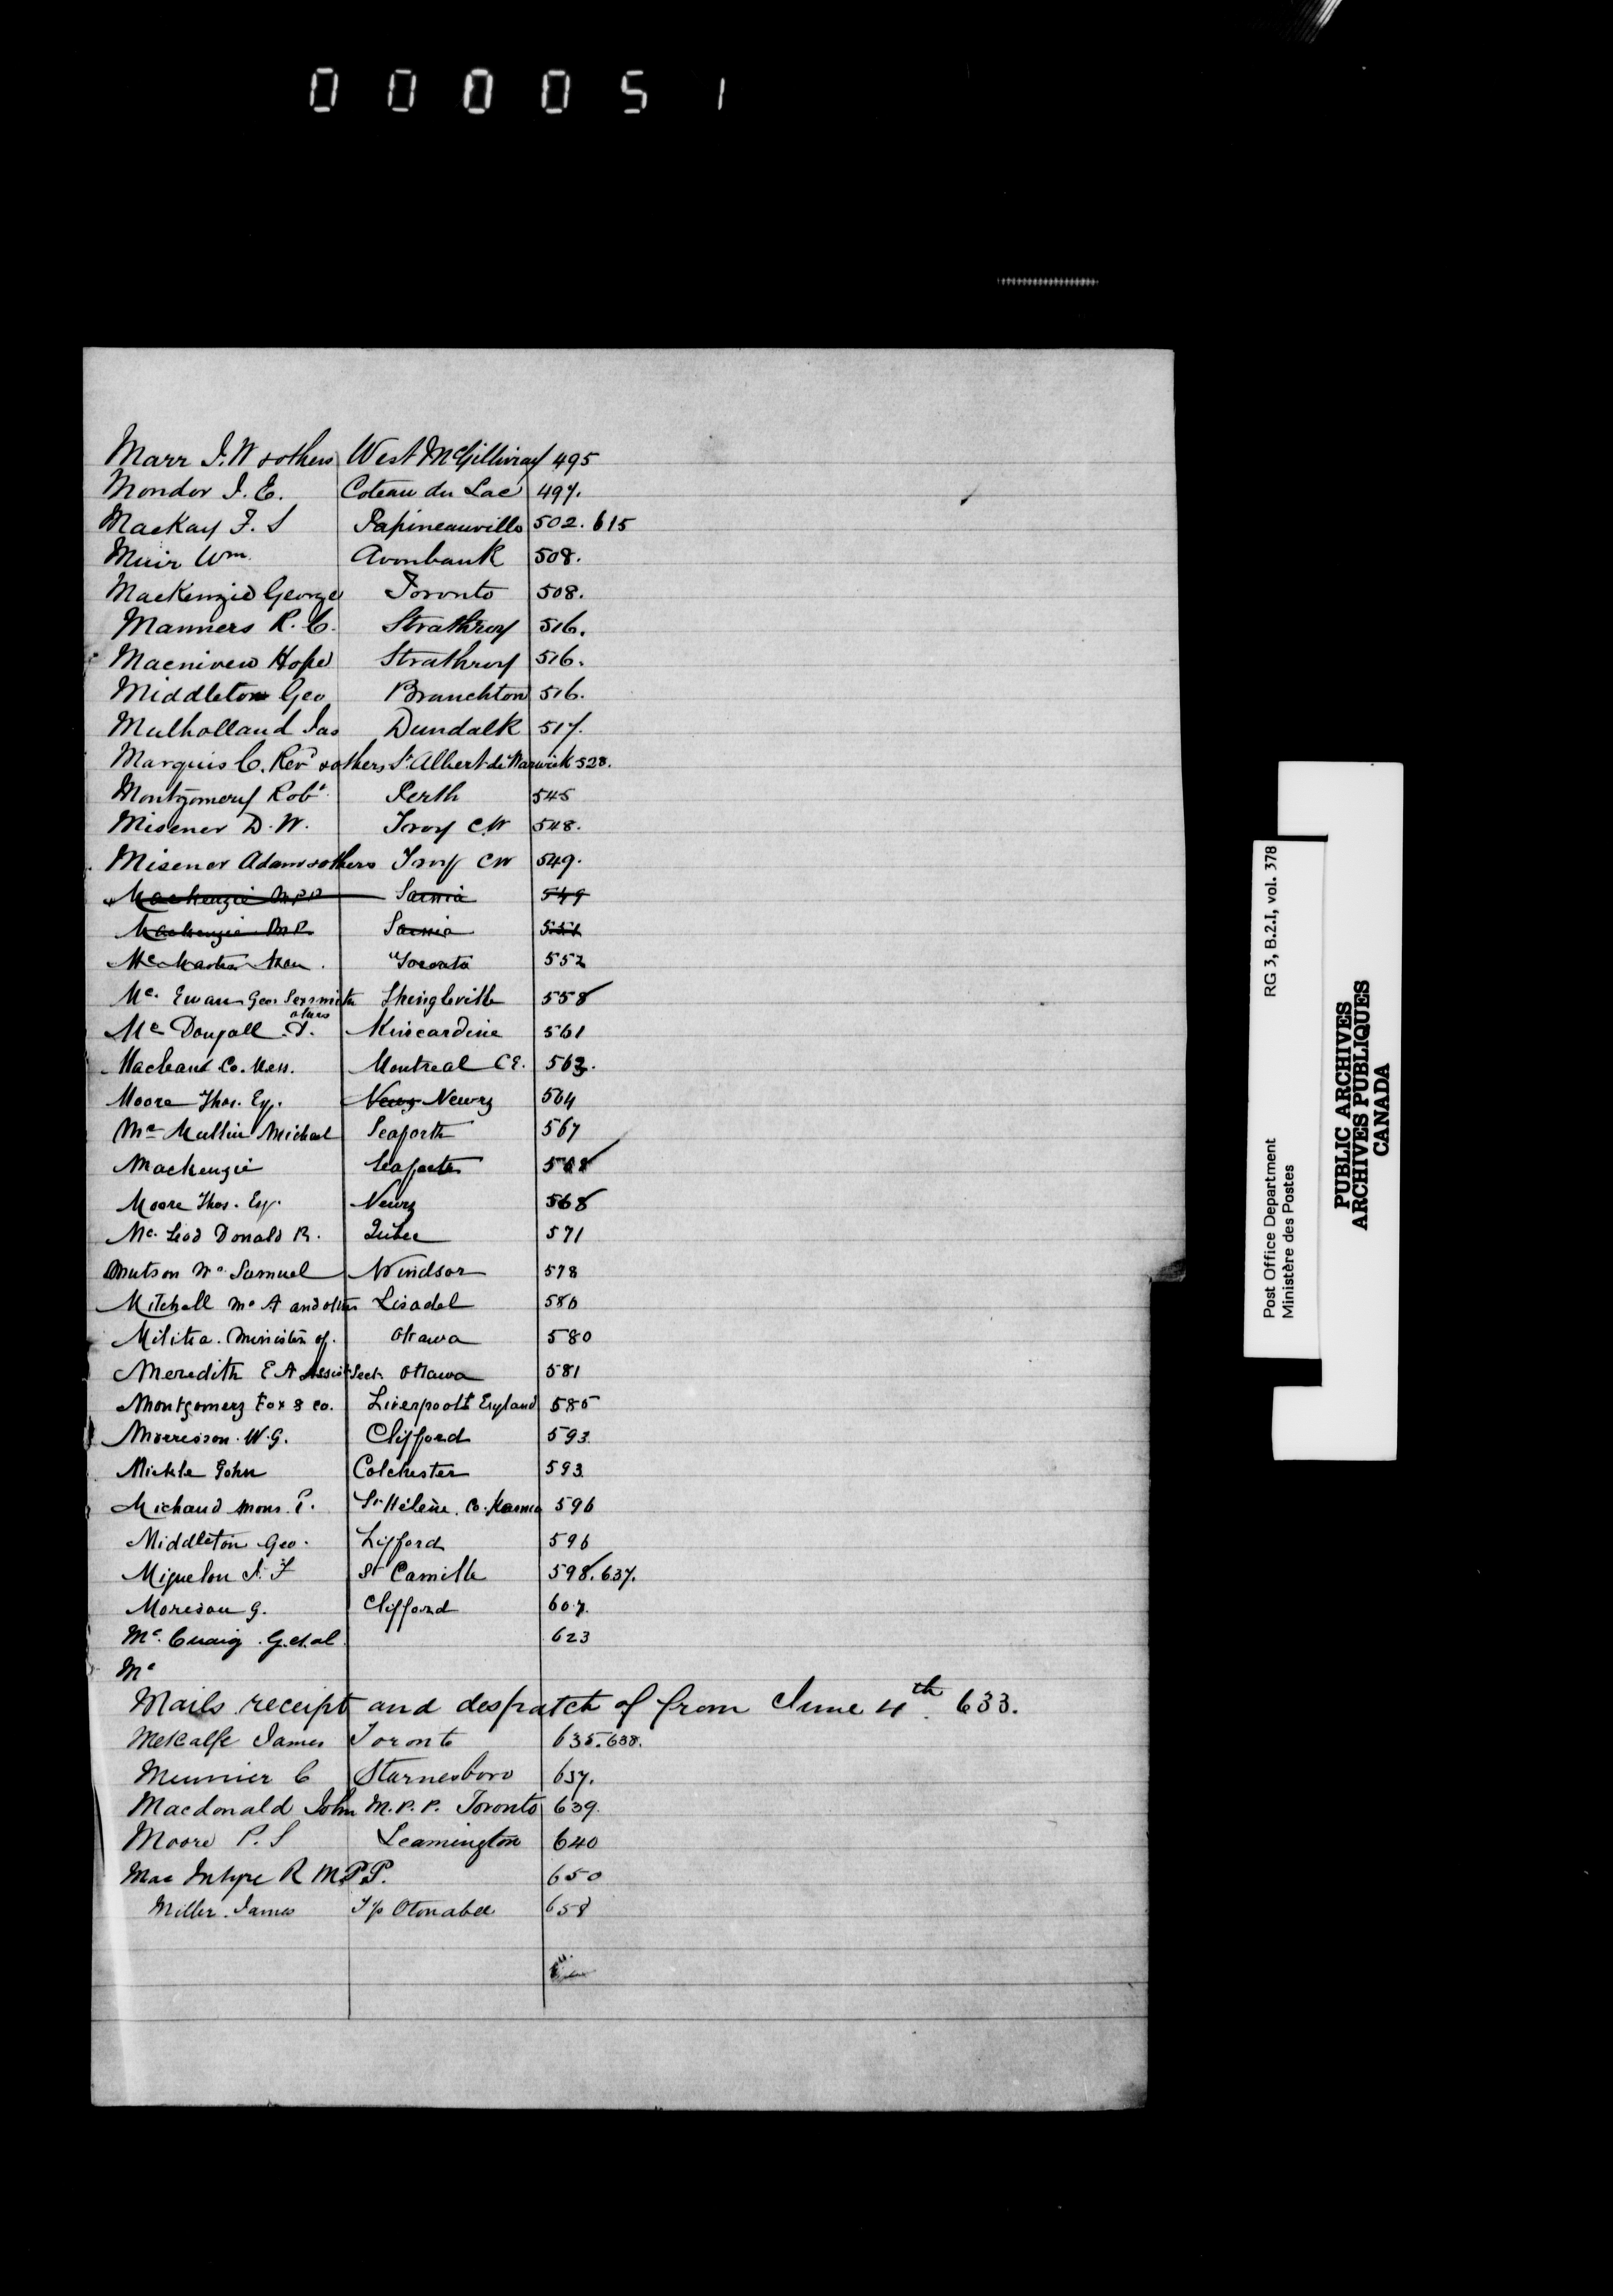 000051
Marr J. W & others West McGillivray 495
Mondor J. E. Coteau du Lac 497.
MacKay F. S Papineauville 502. 615
Muir Wm. Avonbank 508.
MacKenzie George Toronto 508.
Manners R. C. Strathroy 516.
Macniven Hope Strathroy 516.
Middleton Geo Branchton 516.
Mulholland Jas Dundalk 517.
Marquis C. Revd & others St Albert de Warwick 528.
Montgomery Robt. Perth 545
Misener D. W. Troy C.W 548.
Misener Adam & others Troy CW 549.
Mackenzie M.P.P Sarnia 549
Mackenzie M.P. Sarnia 551
Toronto 552
Mc. Ewan Geo. Shingleville 558
others
Mc Dougall A. Kincardine 561
Co. Mess. Montreal C.E. 563.
Moore Thos. Esq. Newry Newry 564
Mc Mullin Michael Seaforth 567
Mackenzie Seaforth 568
Moore Thos. Esq. Newry 568
Mc. Leod Donald R. Quebec 571
Mutson Samuel Windsor 578
Mitchell Mc A and others Lisadel 580
Militia. Minister of. Ottawa 580
Meredith E A Assist Sect. Ottawa 581
Montgomery Fox & Co. Liverpool England 585
Morrisson. W. G. Clifford 593.
Mickle John Colchester 593.
Michaud Mons. P. St Hélène. Co. 596
Middleton Geo. Lifford 596
Miquelon J. F St Camille 598. 637.
Morison G. Clifford 607.
Mc. Cuaig G. et al 623
Mc
Mails receipt and despatch of from June 4th. 633.
Metcalfe James Toronto 635. 638.
Meunier C Starnesboro 637.
Macdonald John M.P.P. Toronto 639.
Moore P. S Leamington 640
Mac Intyre R M.P.P. 650
Miller. James T/p Otonabee 658
RG 3, B.2.I, vol. 378
Post Office Department
Ministère des Postes
PUBLIC ARCHIVES
ARCHIVES PUBLIQUES
CANADA